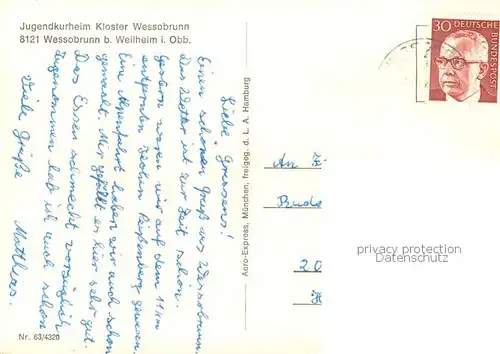 Jugendkurheim Kloster Wessobrunn
8121 Wessobrunn b. Weilheim i. Obb.
Liebe Grassens!
Einen schönen Gruß aus Wessobrunn.
Das Wetter ist zur Zeit schön.
Gestern waren wir auf dem 11 km
entfernten Hohen Peißenberg gewesen.
Eine Alpenfahrt haben wir auch schon
gemacht. Mir gefällt es hier sehr gut.
Das Essen schmeckt vorzüglich
zugenommen hab ich auch schon
Viele Grüße
Matthias.
Nr. 63/4320
Aero-Express, München, freigeg. d. L. A. Hamburg
30 DEUTSCHE BUNDESPOST
An F
Rude
20
H
privacy protection
Datenschutz